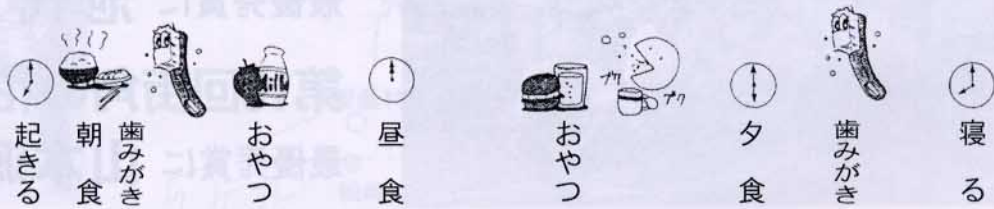 起きる
朝食
歯みがき
おやつ
Milk
昼食
おやつ
ブク
ブク
夕食
歯みがき
寝る